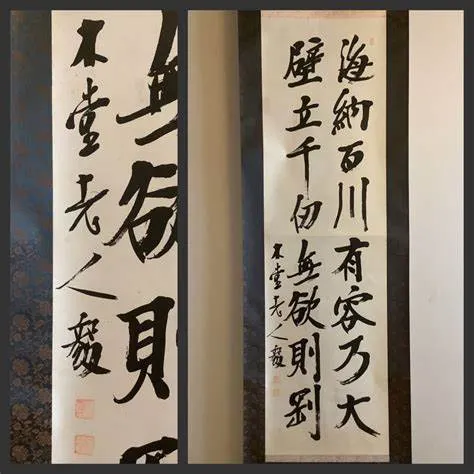 無欲則
木堂老人毅
海納百川有容乃大
壁立千仞無欲則剛
木堂老人毅